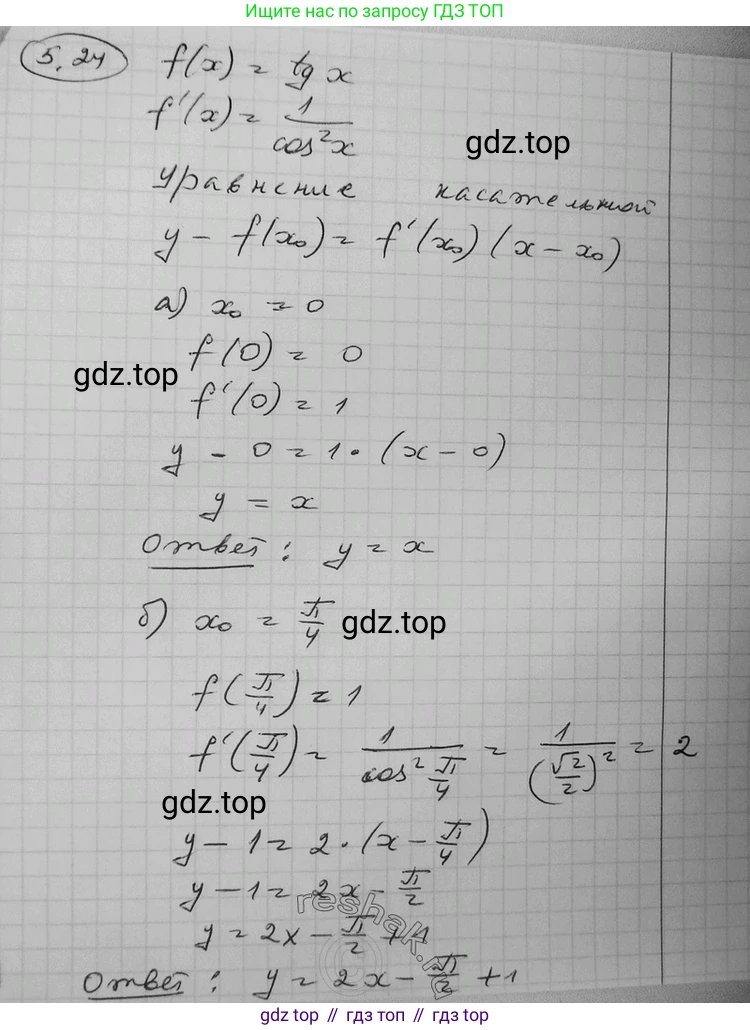 Ищите нас по запросу ГДЗ ТОП
5.24
f(x) = tg x
f'(x) = 1/cos²x
gdz.top
Уравнение касательной
y - f(x₀) = f'(x₀)(x - x₀)
а) x₀ = 0
f(0) = 0
gdz.top
f'(0) = 1
y - 0 = 1 · (x - 0)
y = x
Ответ: y = x
б) x₀ = π/4
gdz.top
f(π/4) = 1
f'(π/4) = 1/cos² π/4 = 1/(√2/2)² = 2
gdz.top
y - 1 = 2 · (x - π/4)
y - 1 = 2x - π/2
y = 2x - π/2 + 1
reshak.ru
Ответ: y = 2x - π/2 + 1
gdz.top // гдз.топ // gdz.top